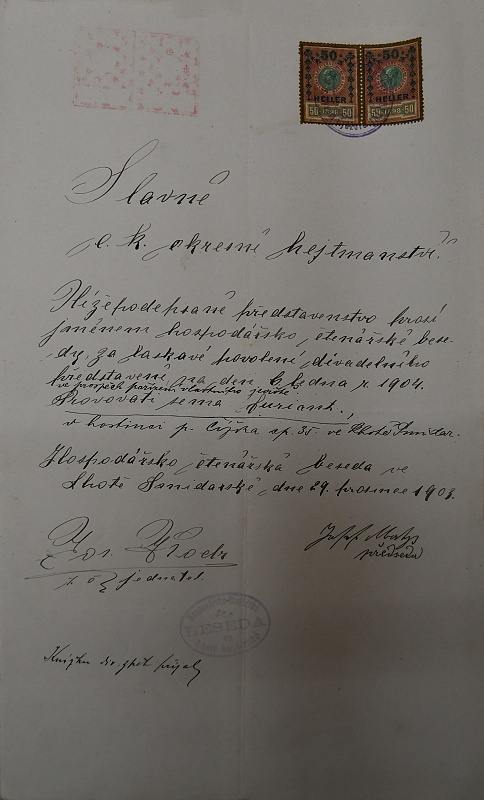 50 50
HELLER HELLER
50 1898 50 50 1898 50
Slavné
c. k. okresné hejtmanství!
Nížepodepsané představenstvo prosí
jménem hospodářsko čtenářské bese-
dy, za laskavé povolení divadelního
představení na den 6 ledna r. 1904.
ve prospěch pořízení vlastního jeviště
Provovati se má Furiant.,
v hostinci p. čp. 35. ve Lhotě Smidar.
Hospodářsko čtenářská beseda ve
Lhotě Smidarské, dne 29. prosince 1903.
Josef
předseda
jednatel.
BESEDA
Knížku div. zpět